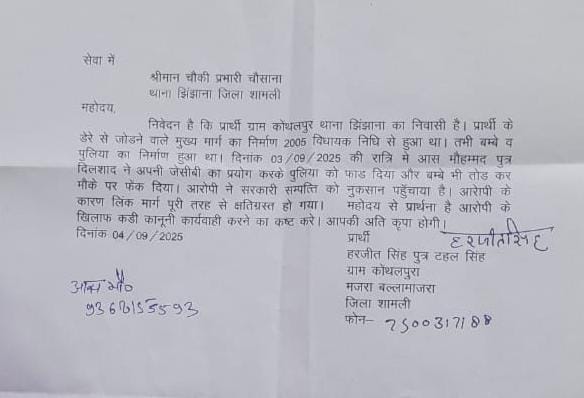 सेवा में
श्रीमान चौकी प्रभारी चौसाना
थाना झिंझाना जिला शामली
महोदय,
निवेदन है कि प्रार्थी ग्राम कोंथलपुर थाना झिंझाना का निवासी है। प्रार्थी के
डेरे से जोडने वाले मुख्य मार्ग का निर्माण 2005 विधायक निधि से हुआ था। तभी बम्बे व
पुलिया का निर्माण हुआ था। दिनांक 03/09/2025 की रात्रि मे आस मौहम्मद पुत्र
दिलशाद ने अपनी जेसीबी का प्रयोग करके पुलिया को फाड दिया और बम्बे भी तोड कर
मौके पर फेंक दिया। आरोपी ने सरकारी सम्पत्ति को नुकसान पहुँचाया है। आरोपी के
कारण लिंक मार्ग पूरी तरह से क्षतिग्रस्त हो गया। महोदय से प्रार्थना है आरोपी के
खिलाफ कडी कानूनी कार्यवाही करने का कष्ट करे। आपकी अति कृपा होगी।
दिनांक 04/09/2025
प्रार्थी हरजीत सिंह
हरजीत सिंह पुत्र टहल सिंह
ग्राम कोंथलपुरा
मजरा बल्लामाजरा
जिला शामली
फोन– 7500317188
आस मौ०